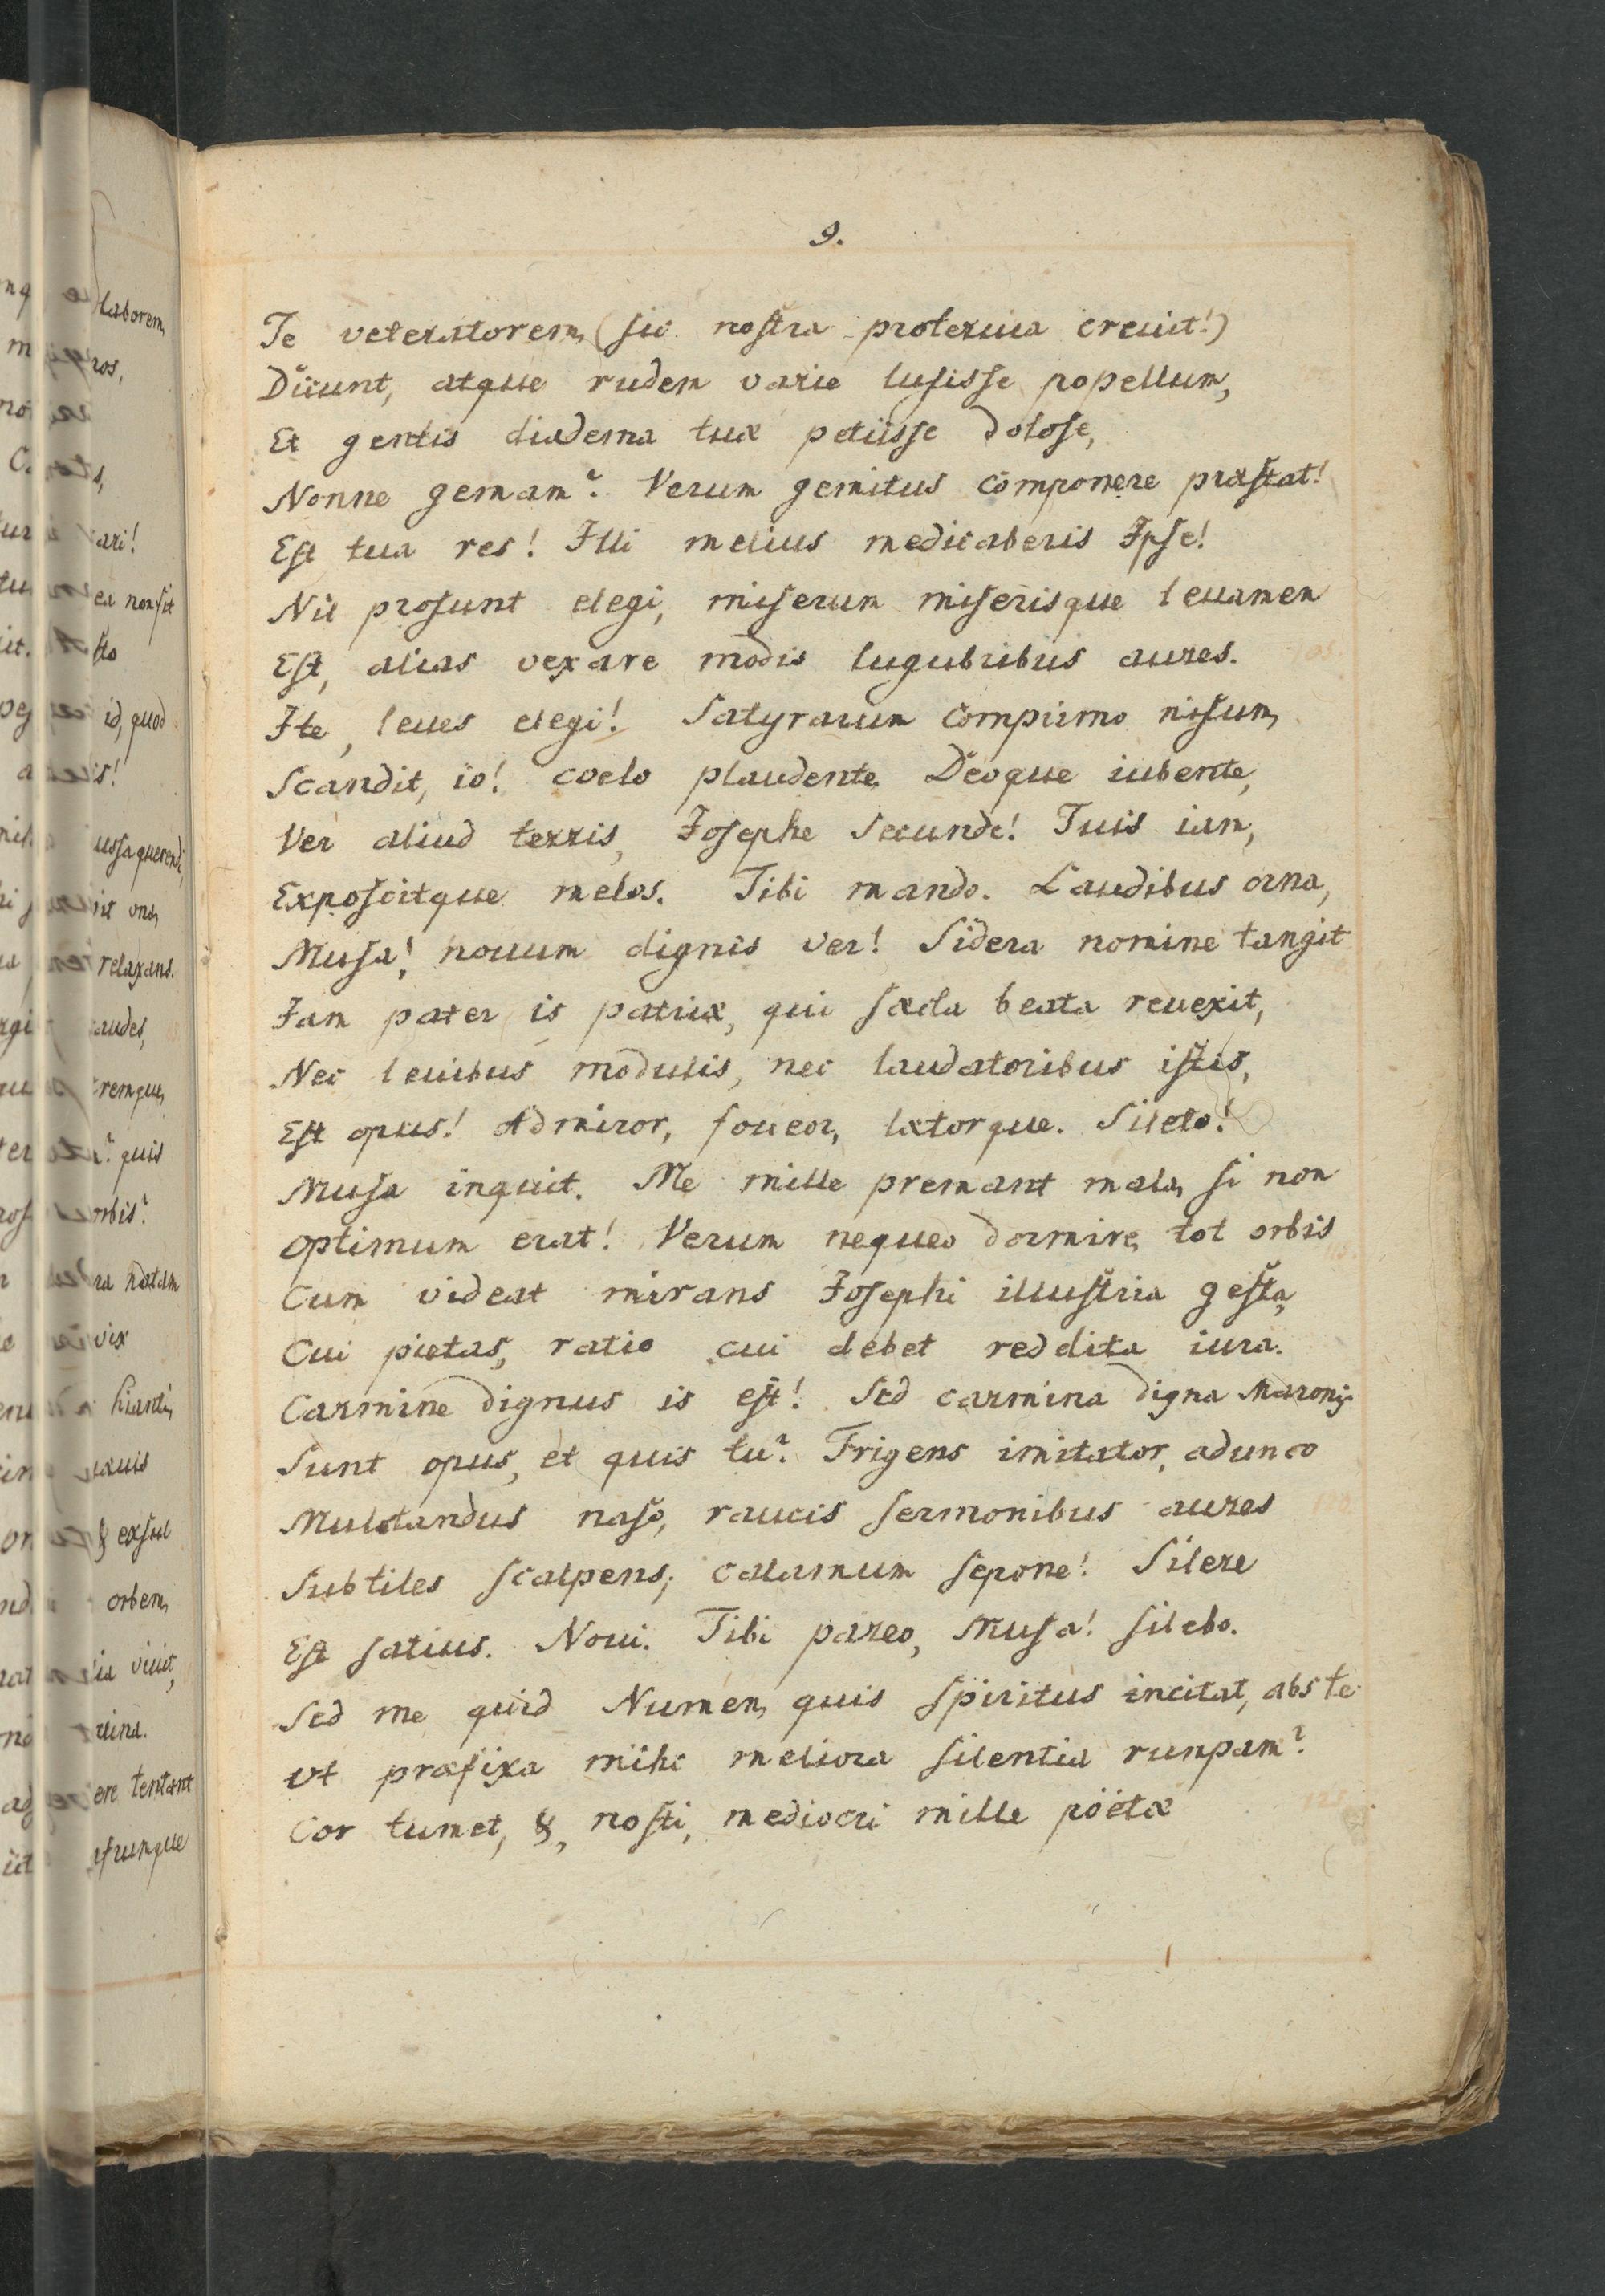 9.
Te veteratorem, (sic nostra proteruia creuit!)
Dicunt, atque rudem varie lusisse popellum,
Et gentis diadema tuæ petiisse dolose,
Nonne gemam? Verum gemitus componere præstat!
Est tua res! Illi melius medicaberis Ipse!
Nil prosunt elegi, miserum miserisque leuamen
Est, alias vexare modis lugubribus aures.
Ite, leues elegi! Satyrarum comprimo nisum,
Scandit, io! coelo plaudente, Deoque iubente,
Ver aliud terris, Josephe Secunde! Tuis iam,
Exposcitque melos. Tibi mando. Laudibus orna,
Musa! nouum dignis ver! Sidera nomine tangit
Jam pater is patriæ, qui sæcla beata reuexit,
Nec leuibus modulis, nec laudatoribus istis,
Est opus! Admiror, foueor, lætorque. Sileto!
Musa inquit. Me mille premant mala, si non
Optimum erat! Verum nequeo dormire, tot orbis
Cum videat mirans Josephi illustria gesta,
Cui pietas, ratio cui debet reddita iura.
Carmine dignus is est! Sed carmina digna Maronis
Sunt opus, et quis tu? Frigens imitator, adunco
Mulctandus naso, raucis sermonibus aures
Subtiles scalpens; calamum sepone! Silere
Est satius. Noui. Tibi pareo, Musa! silebo.
Sed me quid Numen, quis spiritus incitat, abs te
Vt præfixa mihi meliora silentia rumpam?
Cor tumet, &, nosti, mediocri mille poëtæ
laborem,
ros,
ari!
ea non sit
sto
id, quod
is!
iussa querendi,
relaxans.
audes,
remque,
quis
orbis?
ra natam
vix
hianti,
& exsul
orbem,
ia viuit,
ruina.
ere tentant